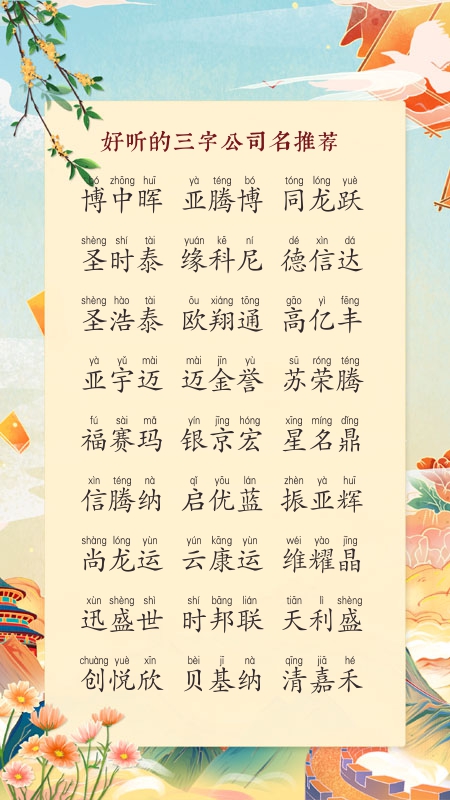 好听的三字公司名推荐
bó zhōng huī yà téng bó tóng lóng yuè
博中晖 亚腾博 同龙跃
shèng shí tài yuán kē ní dé xìn dá
圣时泰 缘科尼 德信达
shèng hào tài ōu xiáng tōng gāo yì fēng
圣浩泰 欧翔通 高亿丰
yà yǔ mài mài jīn yù sū róng téng
亚宇迈 迈金誉 苏荣腾
fú sài mǎ yín jīng hóng xīng míng dǐng
福赛玛 银京宏 星名鼎
xìn téng nà qǐ yōu lán zhèn yà huī
信腾纳 启优蓝 振亚辉
shàng lóng yùn yún kāng yùn wéi yào jīng
尚龙运 云康运 维耀晶
xùn shèng shì shí bāng lián tiān lì shèng
迅盛世 时邦联 天利盛
chuàng yuè xīn bèi jī nà qīng jiā hé
创悦欣 贝基纳 清嘉禾